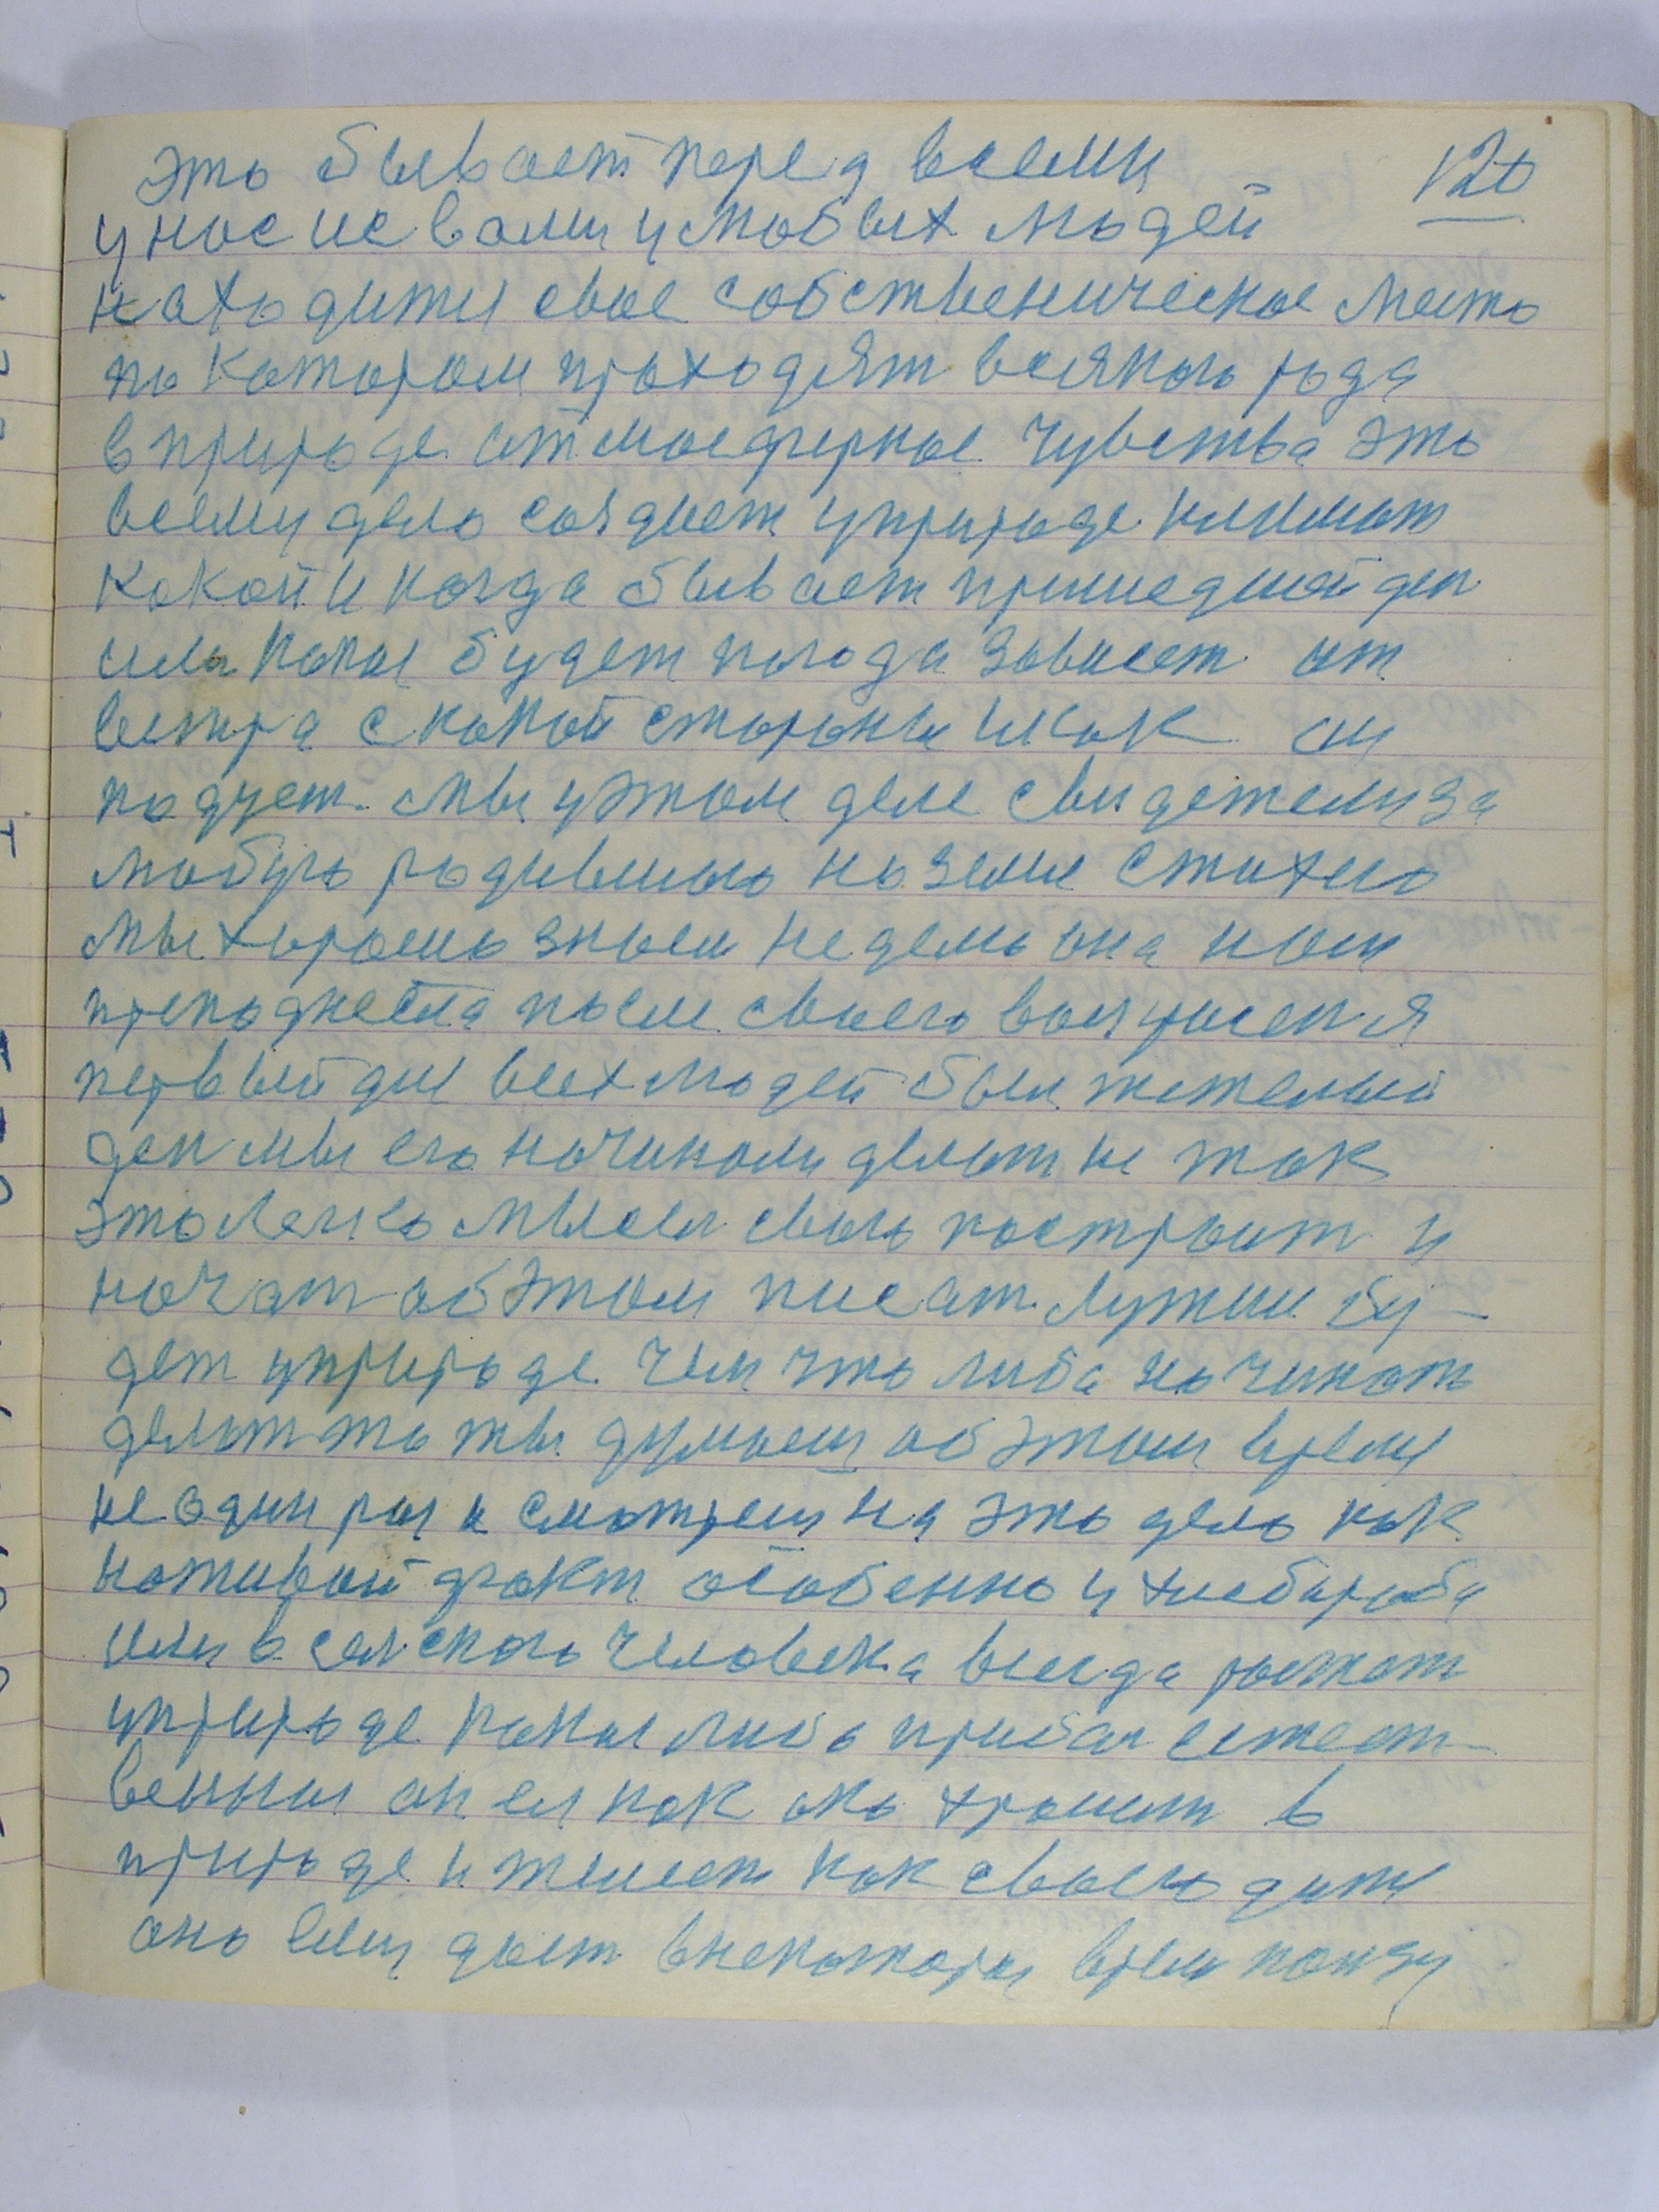 это бывает перед всеми
120
у нас ис вами у любых людей
находити свое собственическое место
по котором проходят всякого рода
в природе атмосферное чувства это
всему дело создает у природе климат
какой и когда бывает пришедшой ден
или какие будет погода зависет от
ветра с какой стороны и как он
подует. Мы у этом деле свидетели за
любуго родившего на земле стихию
мы хорошо знаем неделю она нам
преподнесла после своего
первый дие всех людей был тежелый
ден мы его начинали делат не так
это легко мысел свою построит и
начат об этом писат. Лутше бу-
дет у природе чем что либа начинат
делат то ты думаеш об этом време
не один раз и смотреш на это дело как
на живой факт особенно у хлебороба
или в селского человека всегда рожает
у природе какие либо прибал естест-
венныи он ел как око хранит в
природе и тешет как своего дитя
оно ему дает в некоторы врем ползу